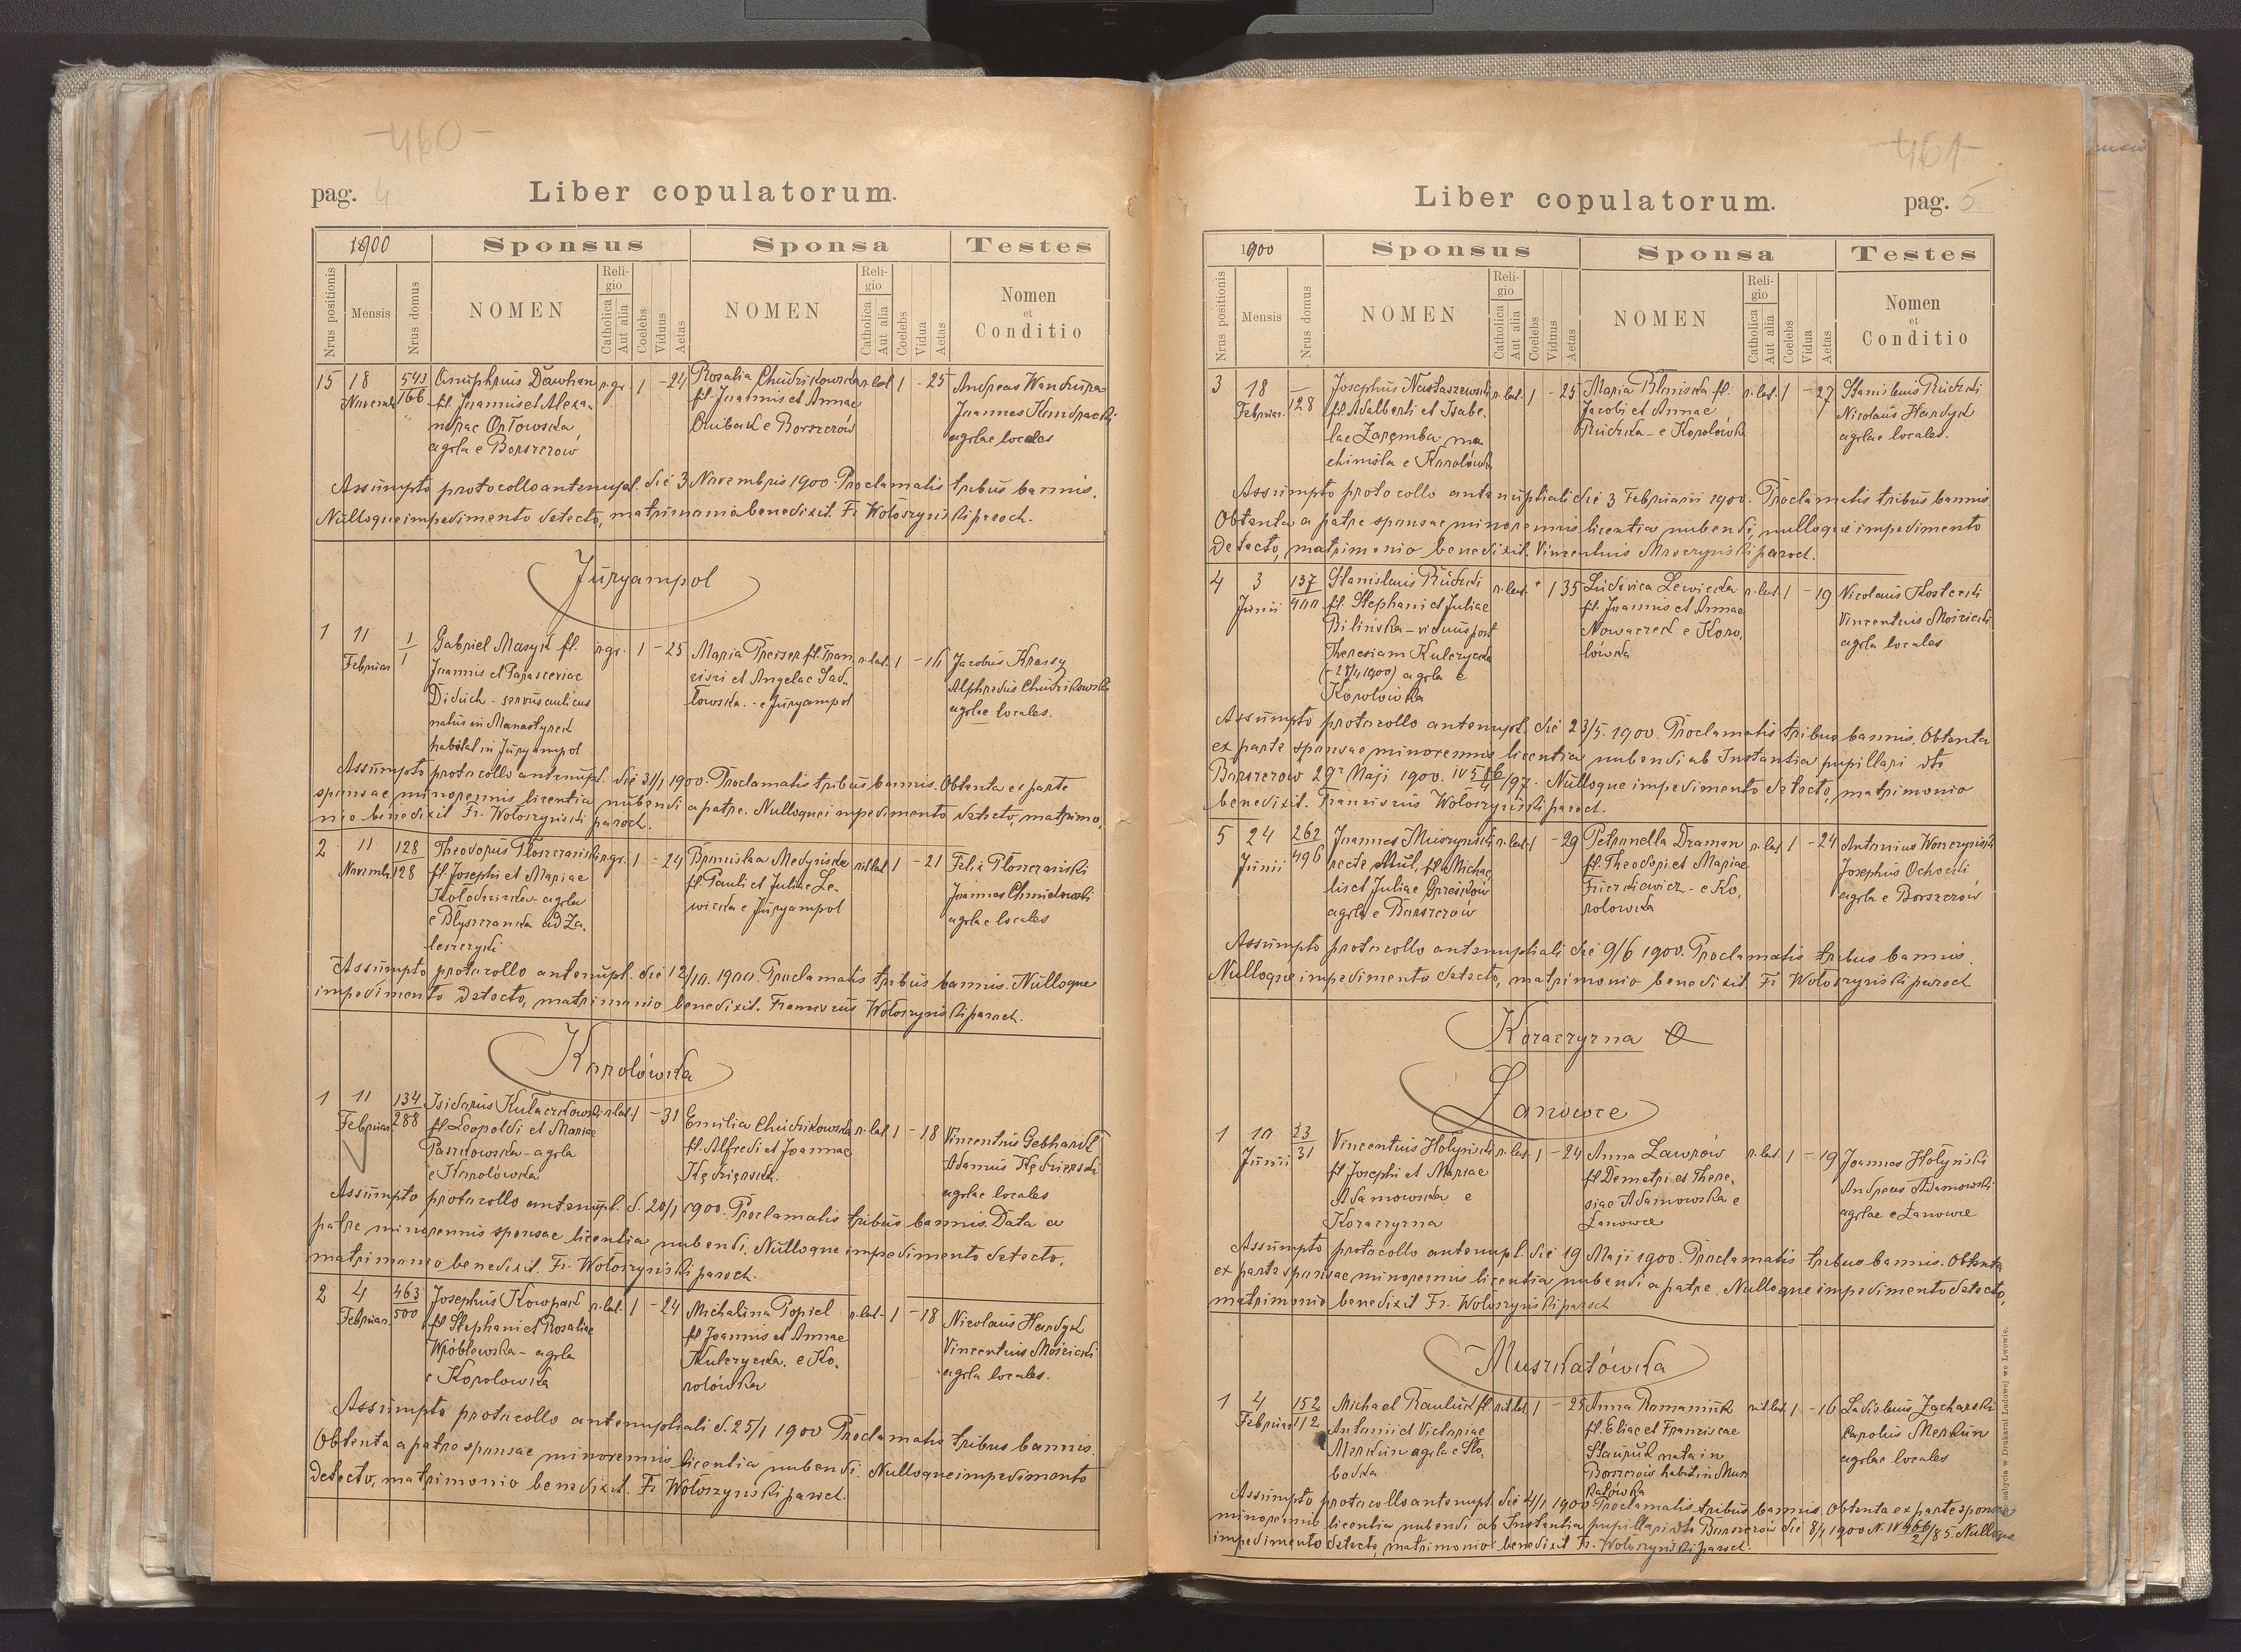 -460-
pag. 4
Liber copulatorum.
1900
Sponsus
Sponsa
Testes
Nrus positionis
Mensis
Nrus domus
NOMEN
Religio
Catholica
Aut alia
Coelebs
Viduus
Aetas
NOMEN
Religio
Catholica
Aut alia
Coelebs
Vidua
Aetas
Nomen
et
Conditio
15 18 543 r.gr. 1 - 24 Rosalia r.lat 1 - 25 Andreas
Novemb. 166 fil. Joannis et Alexa- fil. Joannis et Annae Joannes
Orłowska e Borszczów agrlae locales
agrla e Borszczów
Assumpto protocollo antenupt. die 3 Novembris 1900. Proclamatis tribus bannis.
Nulloque impedimento detecto, matrimonio benedixit. Fr. Wołoszyński paroch.
Juryampol
1 11 1 Gabriel Masyk fl. r.gr. 1 - 25 Maria Preiser fl. Fran r.lat. 1 - 16 Jacobus
Februar 1 Joannis et cisci et Angelae Sad- Alphredus
Diduch - łowska. - e Juryampol agrlae locales.
natus in
habitat in Juryampol
Assumpto protocollo antenupt. die 31/1 1900. Proclamatis tribus bannis. Obtenta ex parte
sponsae minorennis licentia nubendi a patre. Nulloque impedimento detecto, matrimo-
nio benedixit Fr. Wołoszyński paroch.
2 11 128 Theodorus r.gr. 1 - 24 Bronislaa rit lat 1 - 21 Felix
Novemb. 128 fl. Josephi et Mariae fl. Pauli et Juliae Le- Joannes
agrla wicka e Juryampol agrlae locales
e Błyszczanka ad Za-
leszczyki
Assumpto protocollo antenupt. die 12/10. 1900. Proclamatis tribus bannis. Nulloque
impedimento detecto, matrimonio benedixit. Franciscus Wołoszyński paroch.
Korolówka
1 11 134 Isidorus r.lat 1 - 31 Emilia r.lat 1 - 18 Vincentius Gebhardt
Februar 288 fl. Leopoldi et Mariae fl. Alfredi et Joannae Adamus
agrla agrlae locales
e Korolówka
Assumpto protocollo antenupt. d. 20/1 1900. Proclamatis tribus bannis. Data a
patre minorennis sponsae licentia nubendi. Nulloque impedimento detecto,
matrimonio benedixit. Fr. Wołoszyński paroch.
2 4 463 Josephus Kowpak r.lat. 1 - 24 Michalina Popiel r.lat. 1 - 18 Nicolaus Hardyk
Februar. 500 fl. Stephani et Rosaliae fl. Joannis et Annae Vincentius Mościcki
Wróblewska - agrla Kulczycka. e Ko- agrla locales.
e Korolowka rolówka
Assumpto protocollo antenuptiali d. 25/1 1900 Proclamatis tribus bannis.
Obtenta a patre sponsae minorennis licentia nubendi. Nulloque impedimento
detecto, matrimonio benedixit. Fr. Wołoszyński paroch.
-461-
Liber copulatorum.
pag. 5
1900
Sponsus
Sponsa
Testes
Nrus positionis
Mensis
Nrus domus
NOMEN
Religio
Catholica
Aut alia
Coelebs
Viduus
Aetas
NOMEN
Religio
Catholica
Aut alia
Coelebs
Vidua
Aetas
Nomen
et
Conditio
3 18 - Josephus r.lat. 1 - 25 Maria fl. r.lat. 1 - 27 Stanislaus Rudzki
Februar. 128 fl. Adalberti et Isabe- Jacobi et Annae Nicolaus Hardyk
lae Zaremba Rudzka - e Korolówka agrlae locales.
e Korolówka
Assumpto protocollo antenuptiali die 3 Februarii 1900. Proclamatis tribus bannis.
Obtenta a patre sponsae minorennis licentia nubendi, nulloque impedimento
detecto, matrimonio benedixit. Vincentius paroch.
4 3 137 Stanislaus Rudzki r.lat. 1 35 Ludovica Lewicka r.lat. 1 - 19 Nicolaus Kostecki
Junii 400 fl. Stephani et Juliae fl. Joannis et Annae Vincentius Mościcki
Bilińska - viduus post Nowaczek e Koro- agrla locales
Theresiam Kulczycka lówka
(- 28/4 1900) agrla e
Korolówka
Assumpto protocollo antenupt. die 23/5. 1900. Proclamatis tribus bannis. Obtenta
ex parte sponsae minorennis licentia nubendi ab Instantia pupillari dto
Borszczow 29 Maji 1900. Nulloque impedimento detecto, matrimonio
benedixit. Franciscus Wołoszyński paroch.
5 24 262 Joannes r.lat. 1 - 29 Petronella Draman r.lat 1 - 24 Antonius
Junii 496 recte fl. Micha- fl. Theodori et Mariae Josephus Ochocki
lis et Juliae e Ko- agrla e Borszczów
agrla e Borszczów rolowka
Assumpto protocollo antenuptiali die 9/6 1900. Proclamatis tribus bannis.
Nulloque impedimento detecto, matrimonio benedixit. Fr Wołoszyński paroch
Kozaczyzna
Łanowce
1 10 23 Vincentius Hołyński r.lat. 1 - 24 Anna Ławrów r.lat. 1 - 19 Joannes Hołyński
Junii 31 fl Josephi et Mariae fl Demetri et There- Andreas Adamowski
Adamowska e siae Adamowska e agrlae e Łanowce
Kozaczyzna Łanowce
Assumpto protocollo antenupt. die 19 Maji 1900 Proclamatis tribus bannis. Obtenta
ex parte sponsae minorennis licentia nubendi a patre. Nulloque impedimento detecto,
matrimonio benedixit Fr. Wołoszyński paroch
Muszkatówka
1 4 152 Michael fl rit lat. 1 - 25 Anna Romaniuk rit lat. 1 - 16 Ladislaus Zacharski
Februar 112 Antonii et Victoriae fl. Eliae et Franciscae Carolus Merkun
Merkun agrla e Sło- nata in agrlae locales
bodka Borszczów habit. in Musz
katówka
Assumpto protocollo antenupt. die 4/1 1900 Proclamatis tribus bannis. Obtenta ex parte sponsae
minorennis licentia nubendi ab Instantia pupillari dto Borszczów die 8/1 1900 Nulloque
impedimento detecto, matrimonio benedixit Fr. Wołoszyński paroch.
nabycia w Drukarni Ludowej we Lwowie.